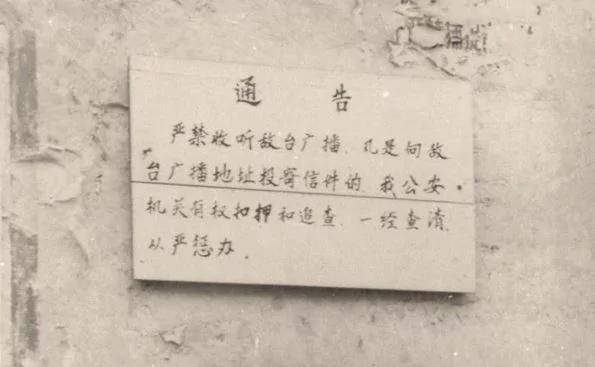 通告
严禁收听敌台广播、凡是向敌
台广播地址投寄信件的、我公安
机关有权扣押和追查、一经查清、
从严惩办.